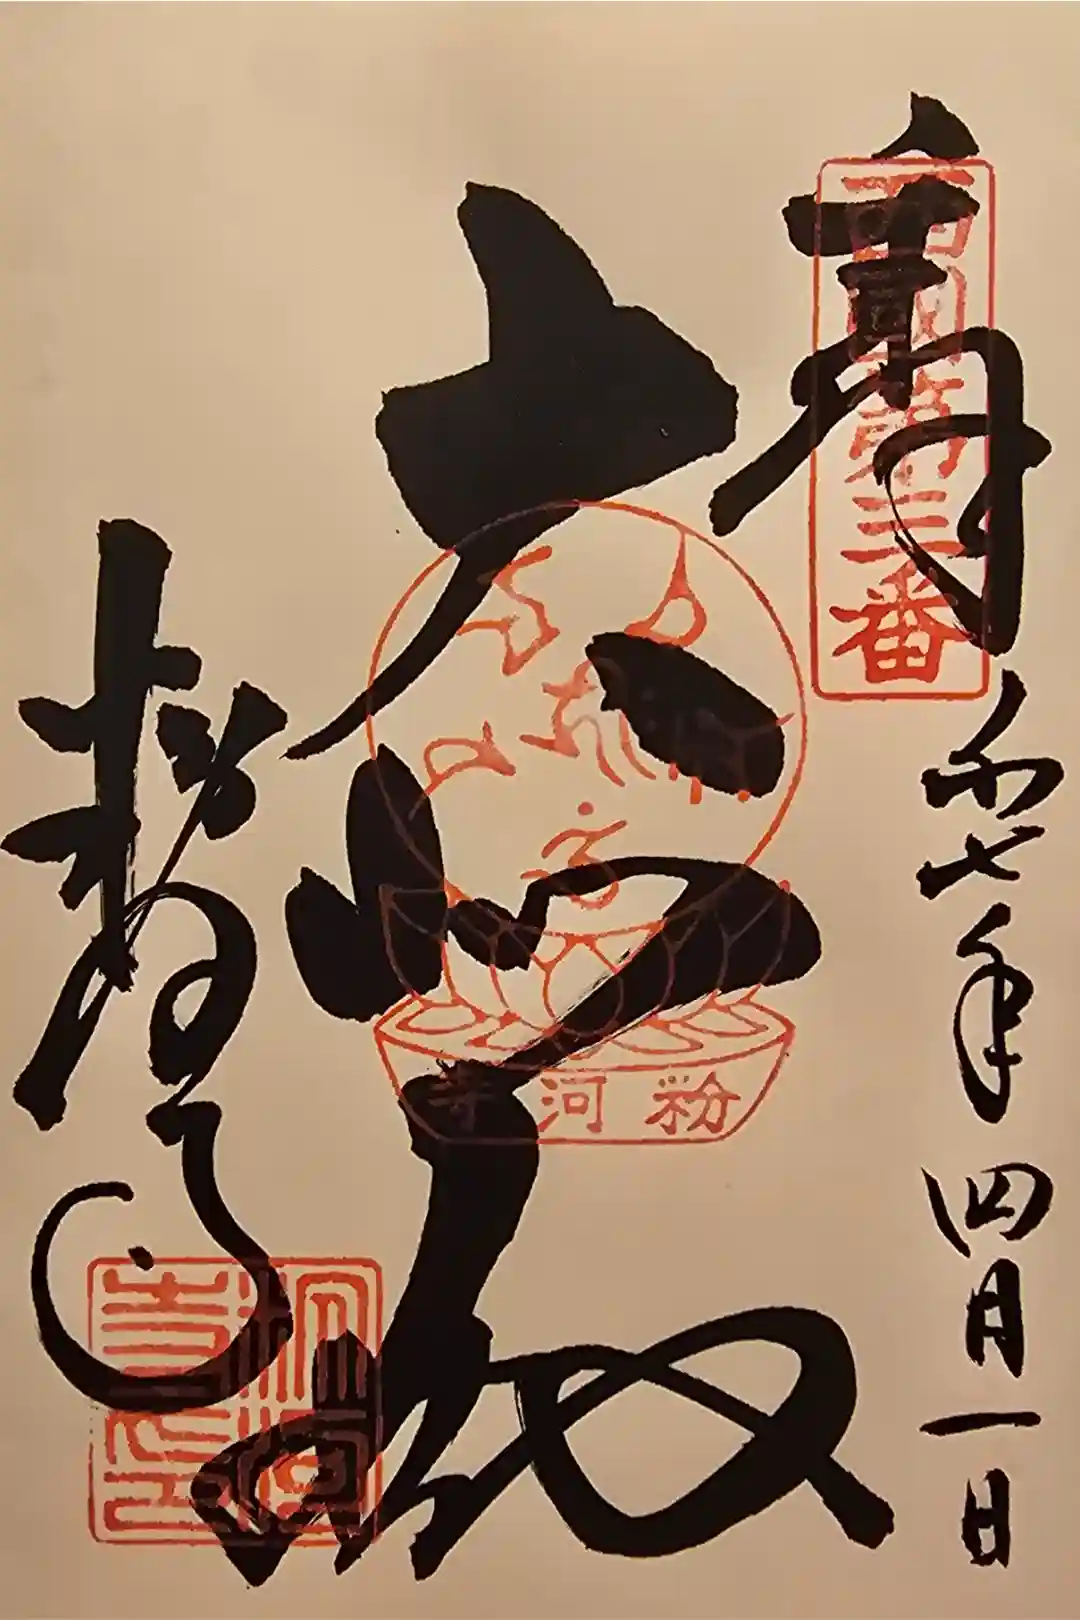 奉拝
西國第三番
和七年四月一日
大悲殿
粉河寺
粉河寺
粉河寺之印